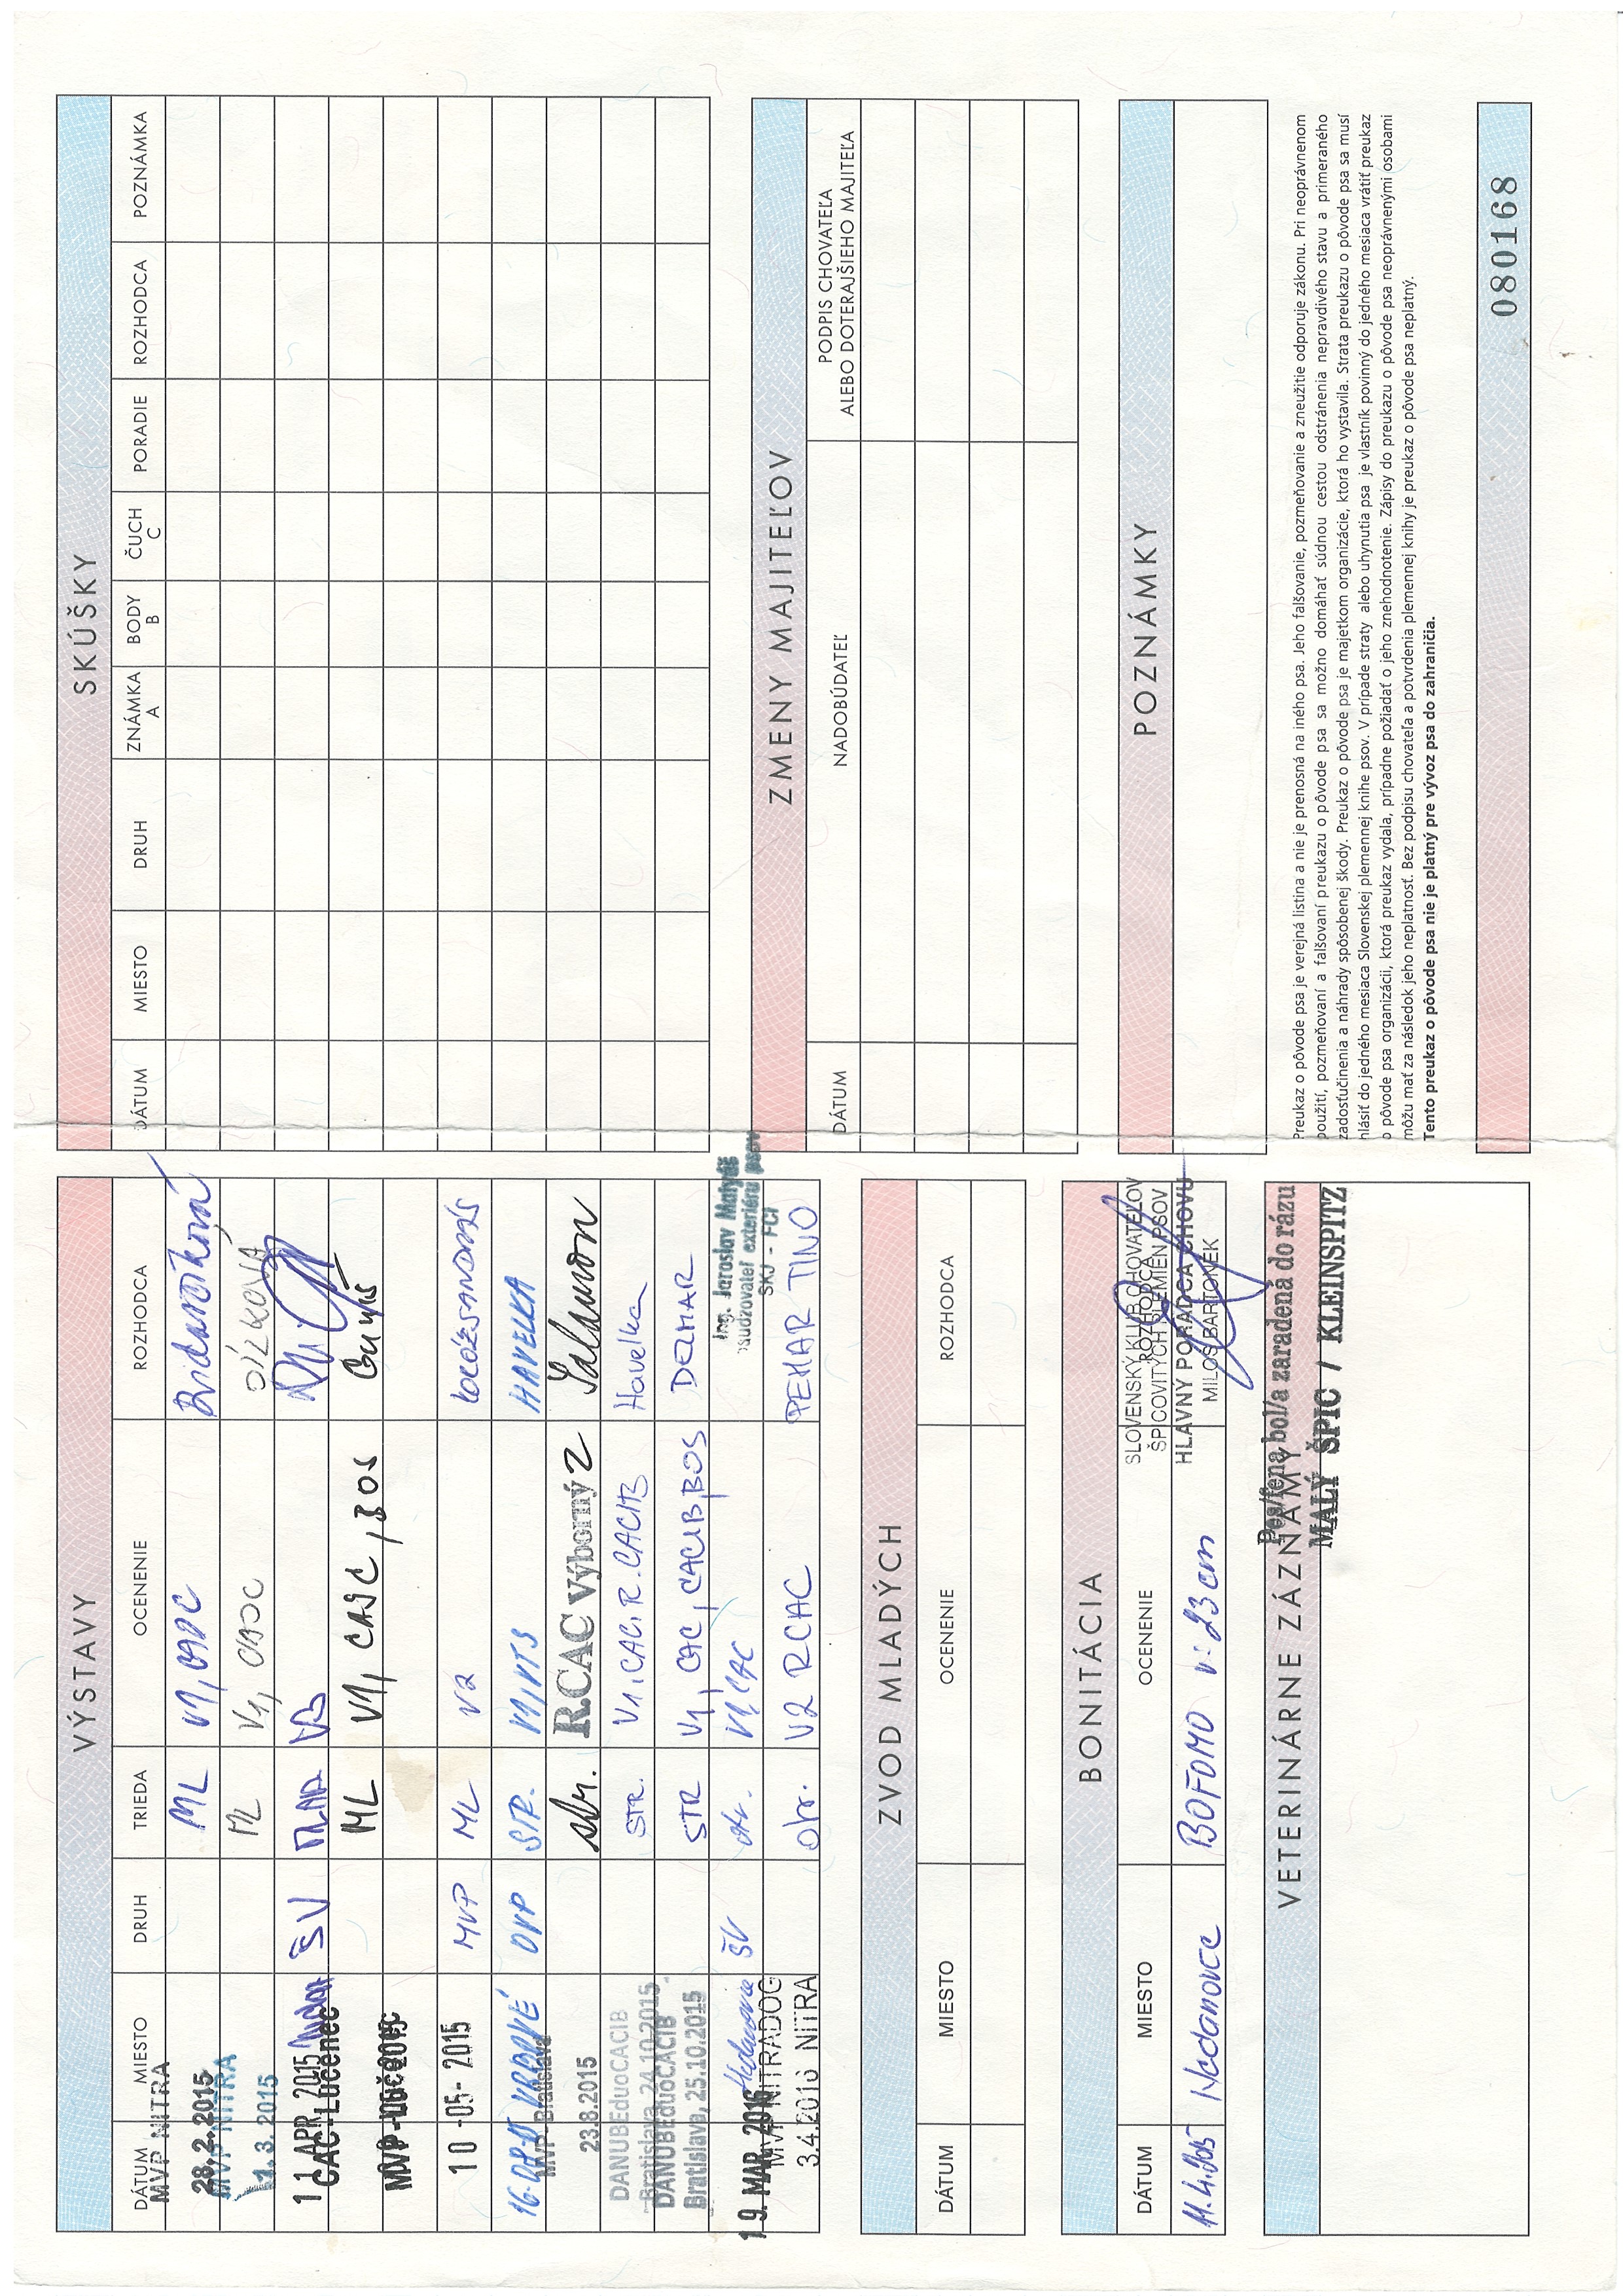 VÝSTAVY
DÁTUM MIESTO DRUH TRIEDA OCENENIE ROZHODCA
MVP NITRA 28.2.2015 ML V1, CAJC
MVP NITRA 1. 3. 2015 ML V1, CAJC
11 APR 2015 ŠV MLAD
CAC Lučenec ML V1, CAJC, BOS
MVP
10 -05- 2015 MVP ML V2
OVP STR. HAVELKA
MVP-Bratislava 23.8.2015 R.CAC Výborný 2 Salmon
DANUBEduoCACIB Bratislava 24.10.2015 STR. V1, CAC, R.CACIB Havelka
DANUBEduoCACIB Bratislava, 25.10.2015 STR V1, CAC, CACIB, BOS DELMAR
19. MAR. 2016 ŠV otr. V1 CAC Ing. Jaroslav Matyáš
posudzovateľ exteriéru psov
SKJ - FCI
MVP NITRADOG 3.4.2016 NITRA otv. V2 RCAC PEHAR TINO
ZVOD MLADÝCH
DÁTUM MIESTO OCENENIE ROZHODCA
BONITÁCIA
DÁTUM MIESTO OCENENIE ROZHODCA
11.4.2015 Nedanovce v: 23 cm
SLOVENSKÝ KLUB CHOVATEĽOV
ŠPICOVITÝCH PLEMIEN PSOV
HLAVNÝ PORADCA CHOVU
MILOŠ BARTONEK
VETERINÁRNE ZÁZNAMY
Pes/fena bol/a zaradená do rázu
MALÝ ŠPIC / KLEINSPITZ
SKÚŠKY
DÁTUM MIESTO DRUH ZNÁMKA A BODY B ČUCH C PORADIE ROZHODCA POZNÁMKA
ZMENY MAJITEĽOV
DÁTUM NADOBÚDATEĽ PODPIS CHOVATEĽA
ALEBO DOTERAJŠIEHO MAJITEĽA
POZNÁMKY
Preukaz o pôvode psa je verejná listina a nie je prenosná na iného psa. Jeho falšovanie, pozmeňovanie a zneužitie odporuje zákonu. Pri neoprávnenom
použití, pozmeňovaní a falšovaní preukazu o pôvode psa sa možno domáhať súdnou cestou odstránenia nepravdivého stavu a primeraného
zadosťučinenia a náhrady spôsobenej škody. Preukaz o pôvode psa je majetkom organizácie, ktorá ho vystavila. Strata preukazu o pôvode psa sa musí
hlásiť do jedného mesiaca Slovenskej plemennej knihe psov. V prípade straty alebo uhynutia psa je vlastník povinný do jedného mesiaca vrátiť preukaz
o pôvode psa organizácii, ktorá preukaz vydala, prípadne požiadať o jeho znehodnotenie. Zápisy do preukazu o pôvode psa neoprávnenými osobami
môžu mať za následok jeho neplatnosť. Bez podpisu chovateľa a potvrdenia plemennej knihy je preukaz o pôvode psa neplatný.
Tento preukaz o pôvode psa nie je platný pre vývoz psa do zahraničia.
080168